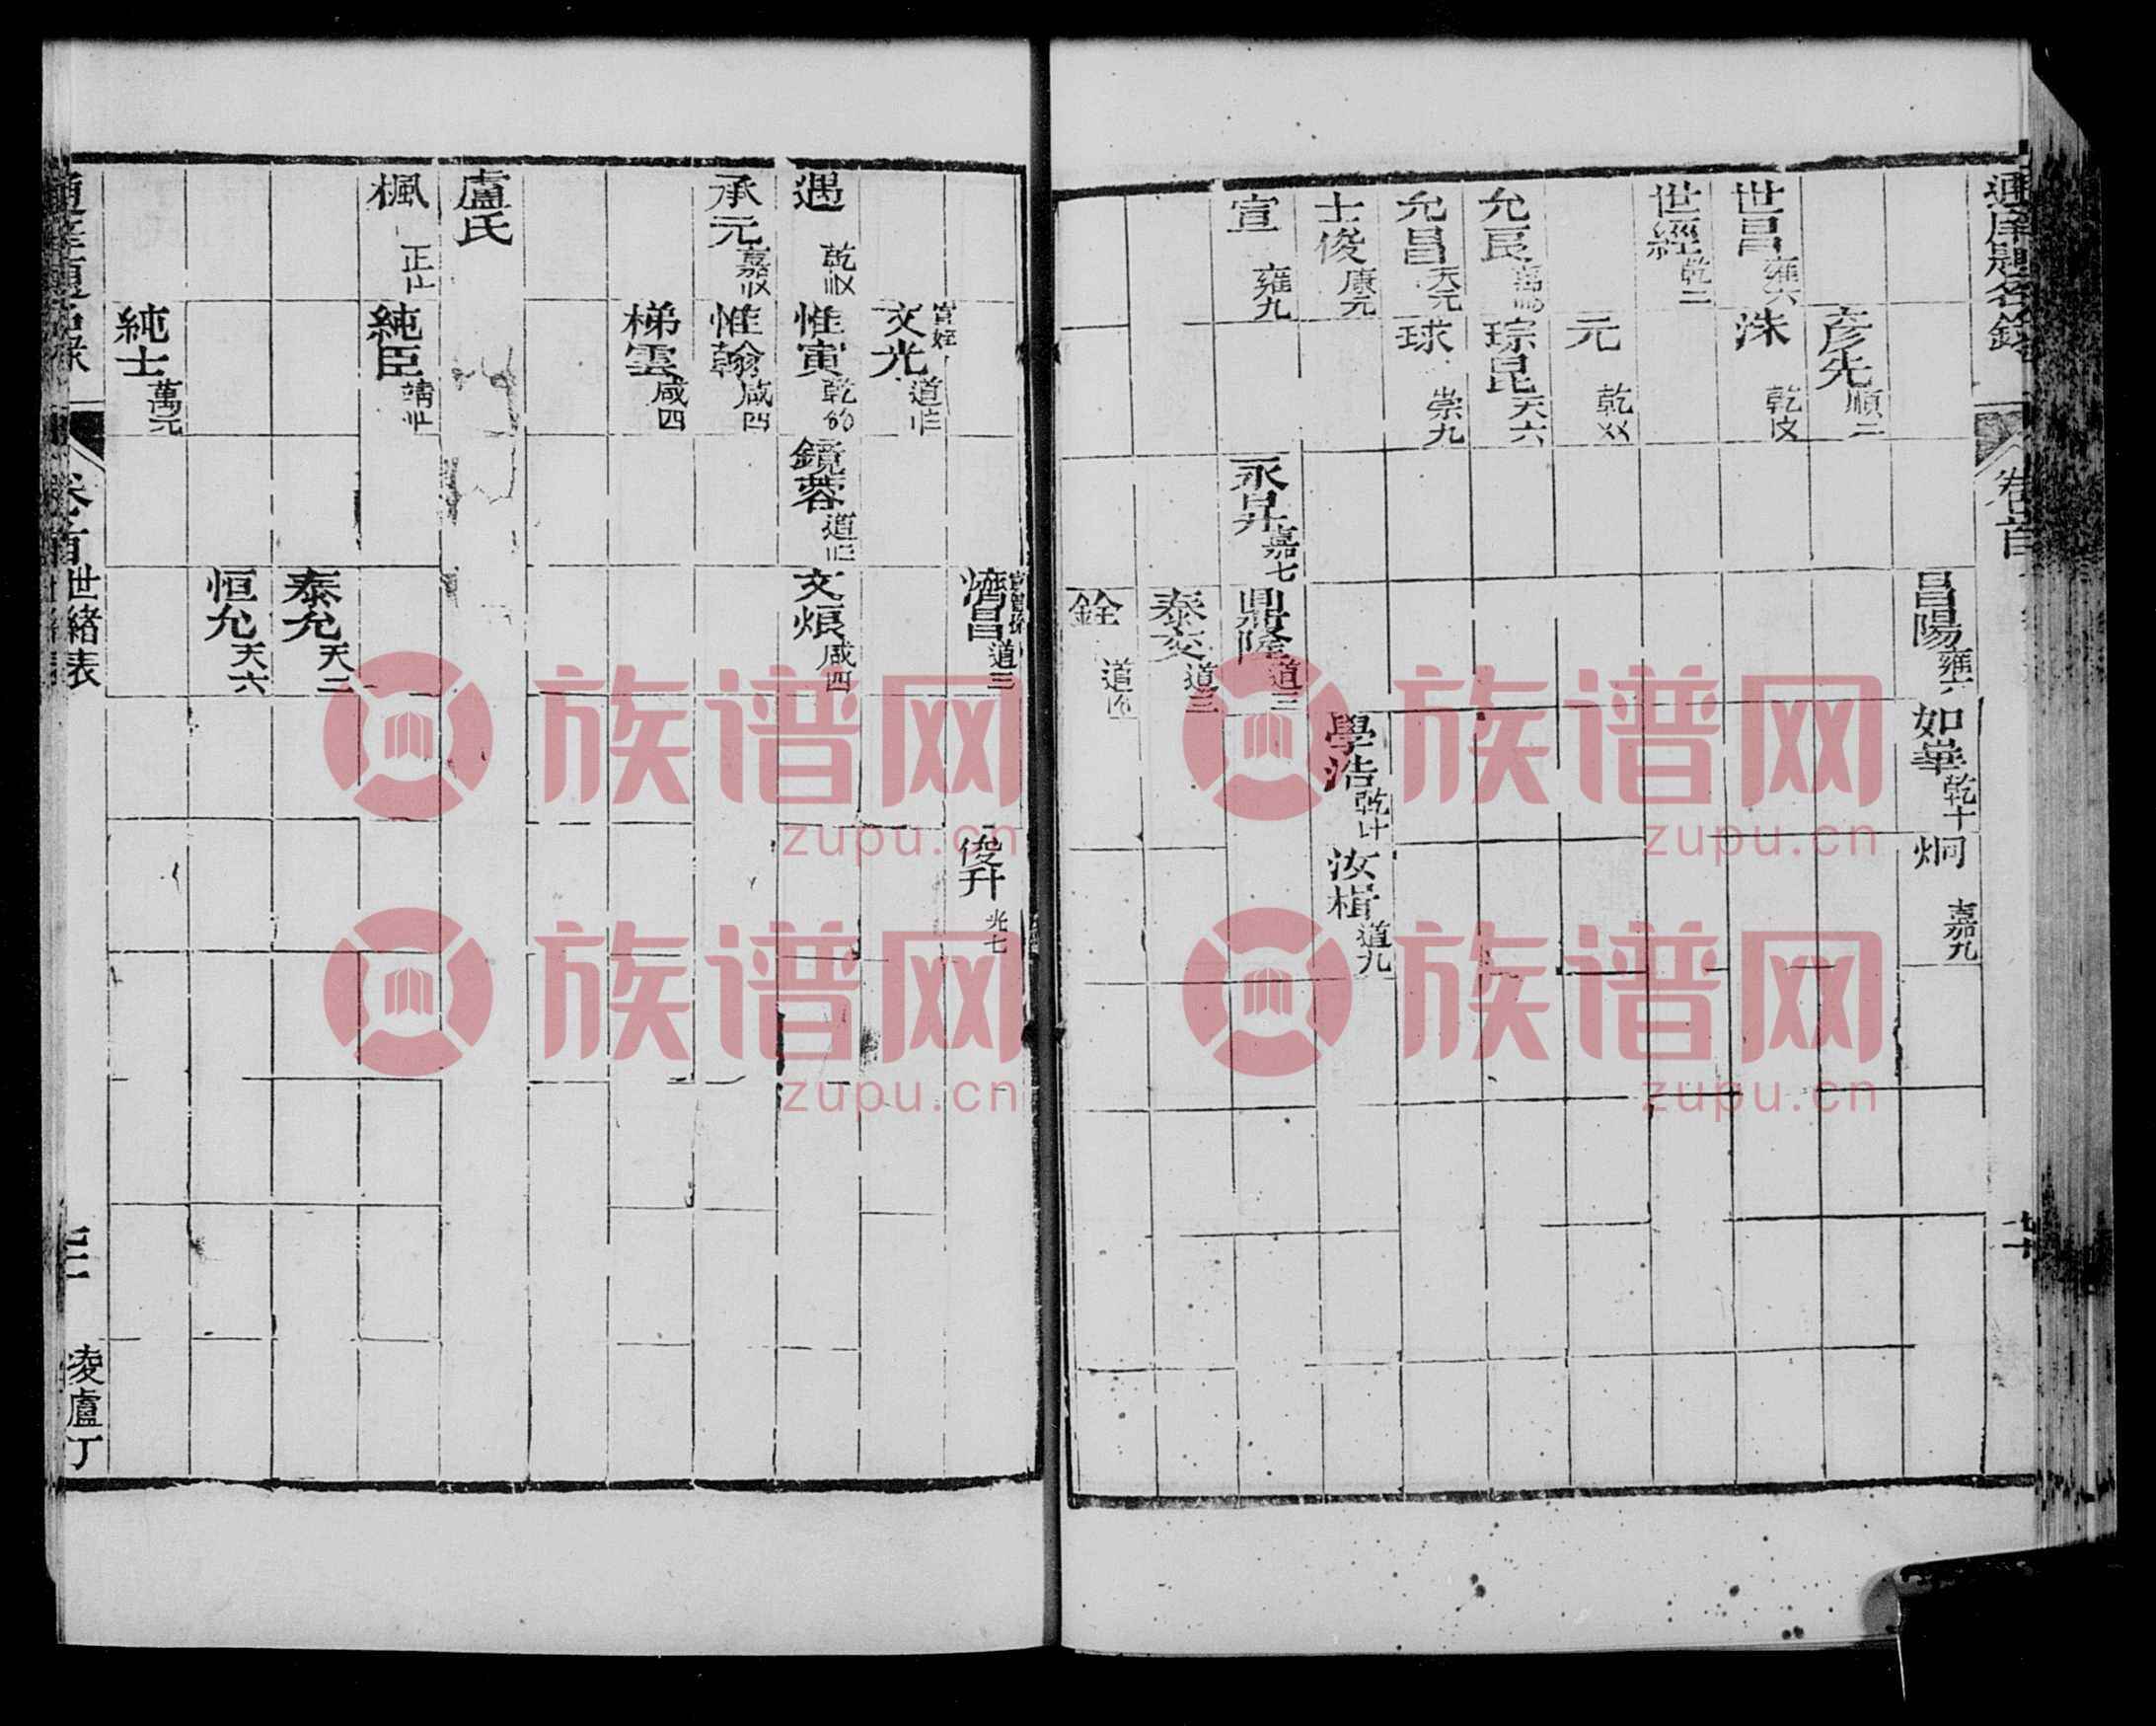 通庠題名錄
卷首
昌陽 雍六
如華 乾十
炯 嘉九
彥先 順二
世昌 雍六
洙 乾
世經 乾二
元 乾
允良 萬
琮昆 天六
允昌 天元
球 崇九
士俊 康元
學浩 乾
汝楫 道九
宣 雍九
永昇 嘉七
鼎隆 道三
泰交 道三
銓 道
昌 道三
俊升 光七
文光 道
遇 乾
惟寅 乾
鏡蓉 道
文烺 咸四
承元 嘉
惟翰 咸四
梯雲 咸四
盧氏
楓 正
純臣 靖
泰允 天二
恒允 天六
純士 萬元
通庠題名錄
卷首
世緒表
凌盧丁
族谱网
zupu.cn
族谱网
zupu.cn
族谱网
zupu.cn
族谱网
zupu.cn